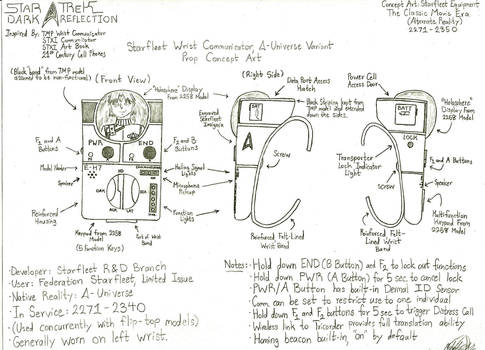 STAR TREK
DARK REFLECTION
Concept Art: Starfleet Equipment
The Classic Movie Era
(Alternate Reality)
2271-2350
Inspired By: TMP Wrist Communicator
STXI Communicator
STXI Art Book
21st Century Cell Phones
Starfleet Wrist Communicator, Δ-Universe Variant
Prop Concept Art
(Black "band" from TMP model
assumed to be non-functional)
(Front View)
"Holosphere" Display
From 2258 Model
(Right Side)
Data Port Access
Hatch
Power Cell
Access Door
"Holosphere"
Display From
2258 Model
Black Striping kept from
TMP model and extended
down the sides.
Embossed Starfleet
Insignia
F1 and A
Buttons
PWR
END
F2 and B
Buttons
BATT
LOCK
Model Number
E-H7
Hailing Signal
Lights
Microphone
Pickup
Speaker
Screw
Transporter
Lock Indicator
Light
F2 and A Buttons
Speaker
Screw
Reinforced
Housing
Function Lights
Keypad from 2258
Model
(5 Function Keys)
Reinforced Felt-Lined
Wrist Band
Reinforced Felt-
Lined Wrist Band
Multifunction
Keypad From
2258 Model
· Developer: Starfleet R&D Branch
· User: Federation Starfleet, Limited Issue
· Native Reality: Δ-Universe
· In Service: 2271-2340
· (Used concurrently with flip-top models)
· Generally worn on left wrist.
Notes: · Hold down END (B Button) and F2 to lock out functions
· Hold down PWR (A Button) for 5 sec to cancel lock
· PWR/A Button has built-in Dermal ID Sensor
· Comm. can be set to restrict use to one individual
· Hold down F1 and F2 buttons for 5 sec to trigger Distress Call
· Wireless link to Tricorder provides full translation ability
· Homing beacon built-in, "on" by default